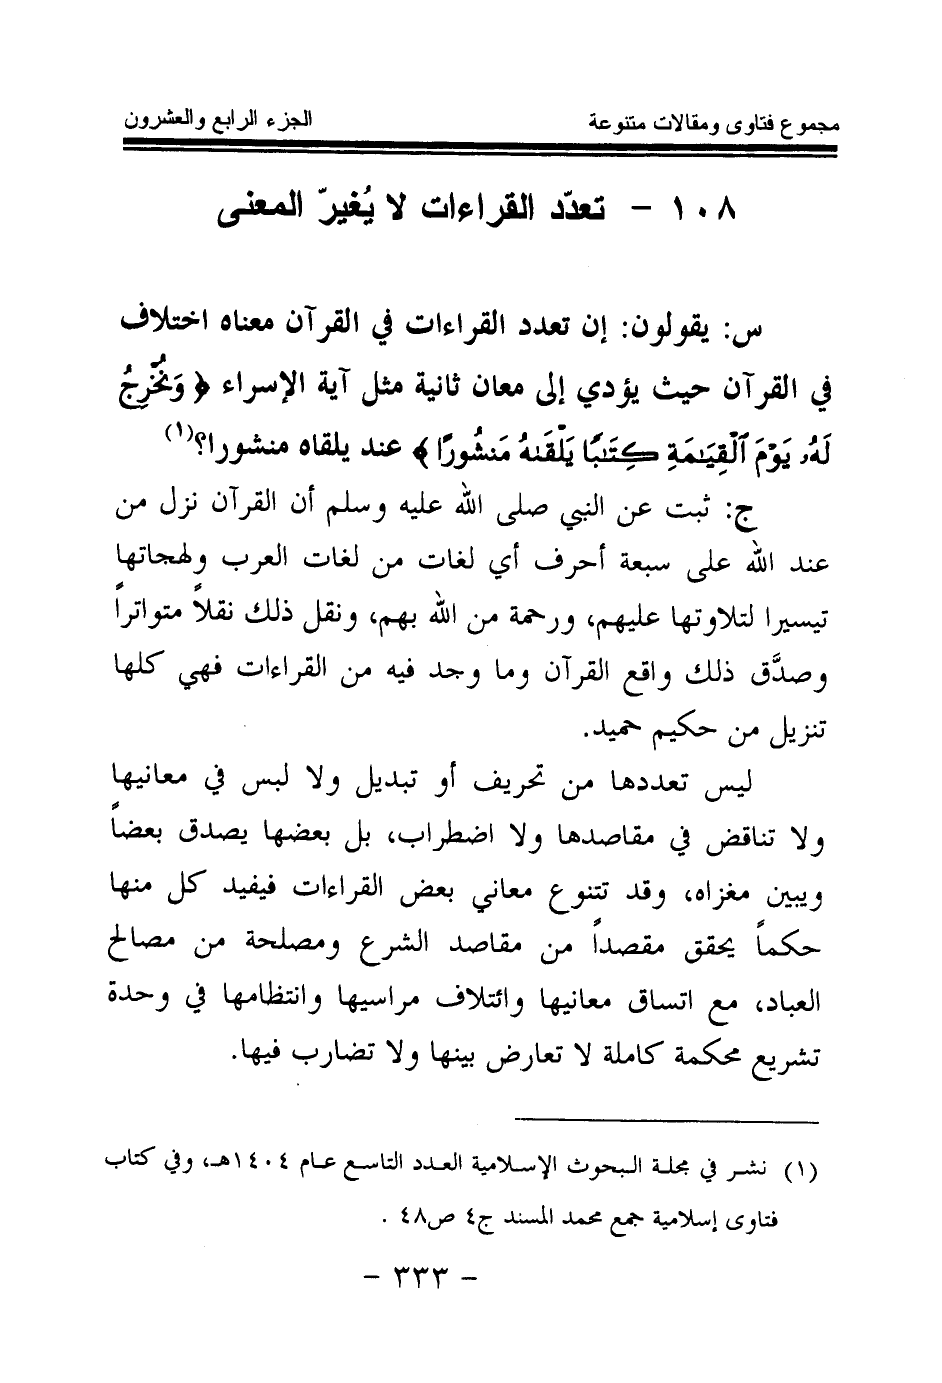 مجموع فتاوى ومقالات متنوعة الجزء الرابع والعشرون
١٠٨ - تعدّد القراءات لا يُغيرّ المعنى
س: يقولون: إن تعدد القراءات في القرآن معناه اختلاف
في القرآن حيث يؤدي إلى معان ثانية مثل آية الإسراء ﴿ وَنُخْرِجُ
لَهُۥ يَوْمَ ٱلْقِيَـٰمَةِ كِتَـٰبًا يَلْقَىٰهُ مَنشُورًا ﴾ عند يلقاه منشورا؟(١)
ج: ثبت عن النبي صلى الله عليه وسلم أن القرآن نزل من
عند الله على سبعة أحرف أي لغات من لغات العرب ولهجاتها
تيسيرا لتلاوتها عليهم، ورحمة من الله بهم، ونقل ذلك نقلاً متواتراً
وصدَّق ذلك واقع القرآن وما وجد فيه من القراءات فهي كلها
تنزيل من حكيم حميد.
ليس تعددها من تحريف أو تبديل ولا لبس في معانيها
ولا تناقض في مقاصدها ولا اضطراب، بل بعضها يصدق بعضاً
ويبين مغزاه، وقد تتنوع معاني بعض القراءات فيفيد كل منها
حكماً يحقق مقصداً من مقاصد الشرع ومصلحة من مصالح
العباد، مع اتساق معانيها وائتلاف مراسيها وانتظامها في وحدة
تشريع محكمة كاملة لا تعارض بينها ولا تضارب فيها.
(١) نشر في مجلة البحوث الإسلامية العدد التاسع عام ١٤٠٤هـ، وفي كتاب
فتاوى إسلامية جمع محمد المسند ج٤ ص٤٨ .
- ٣٣٣ -